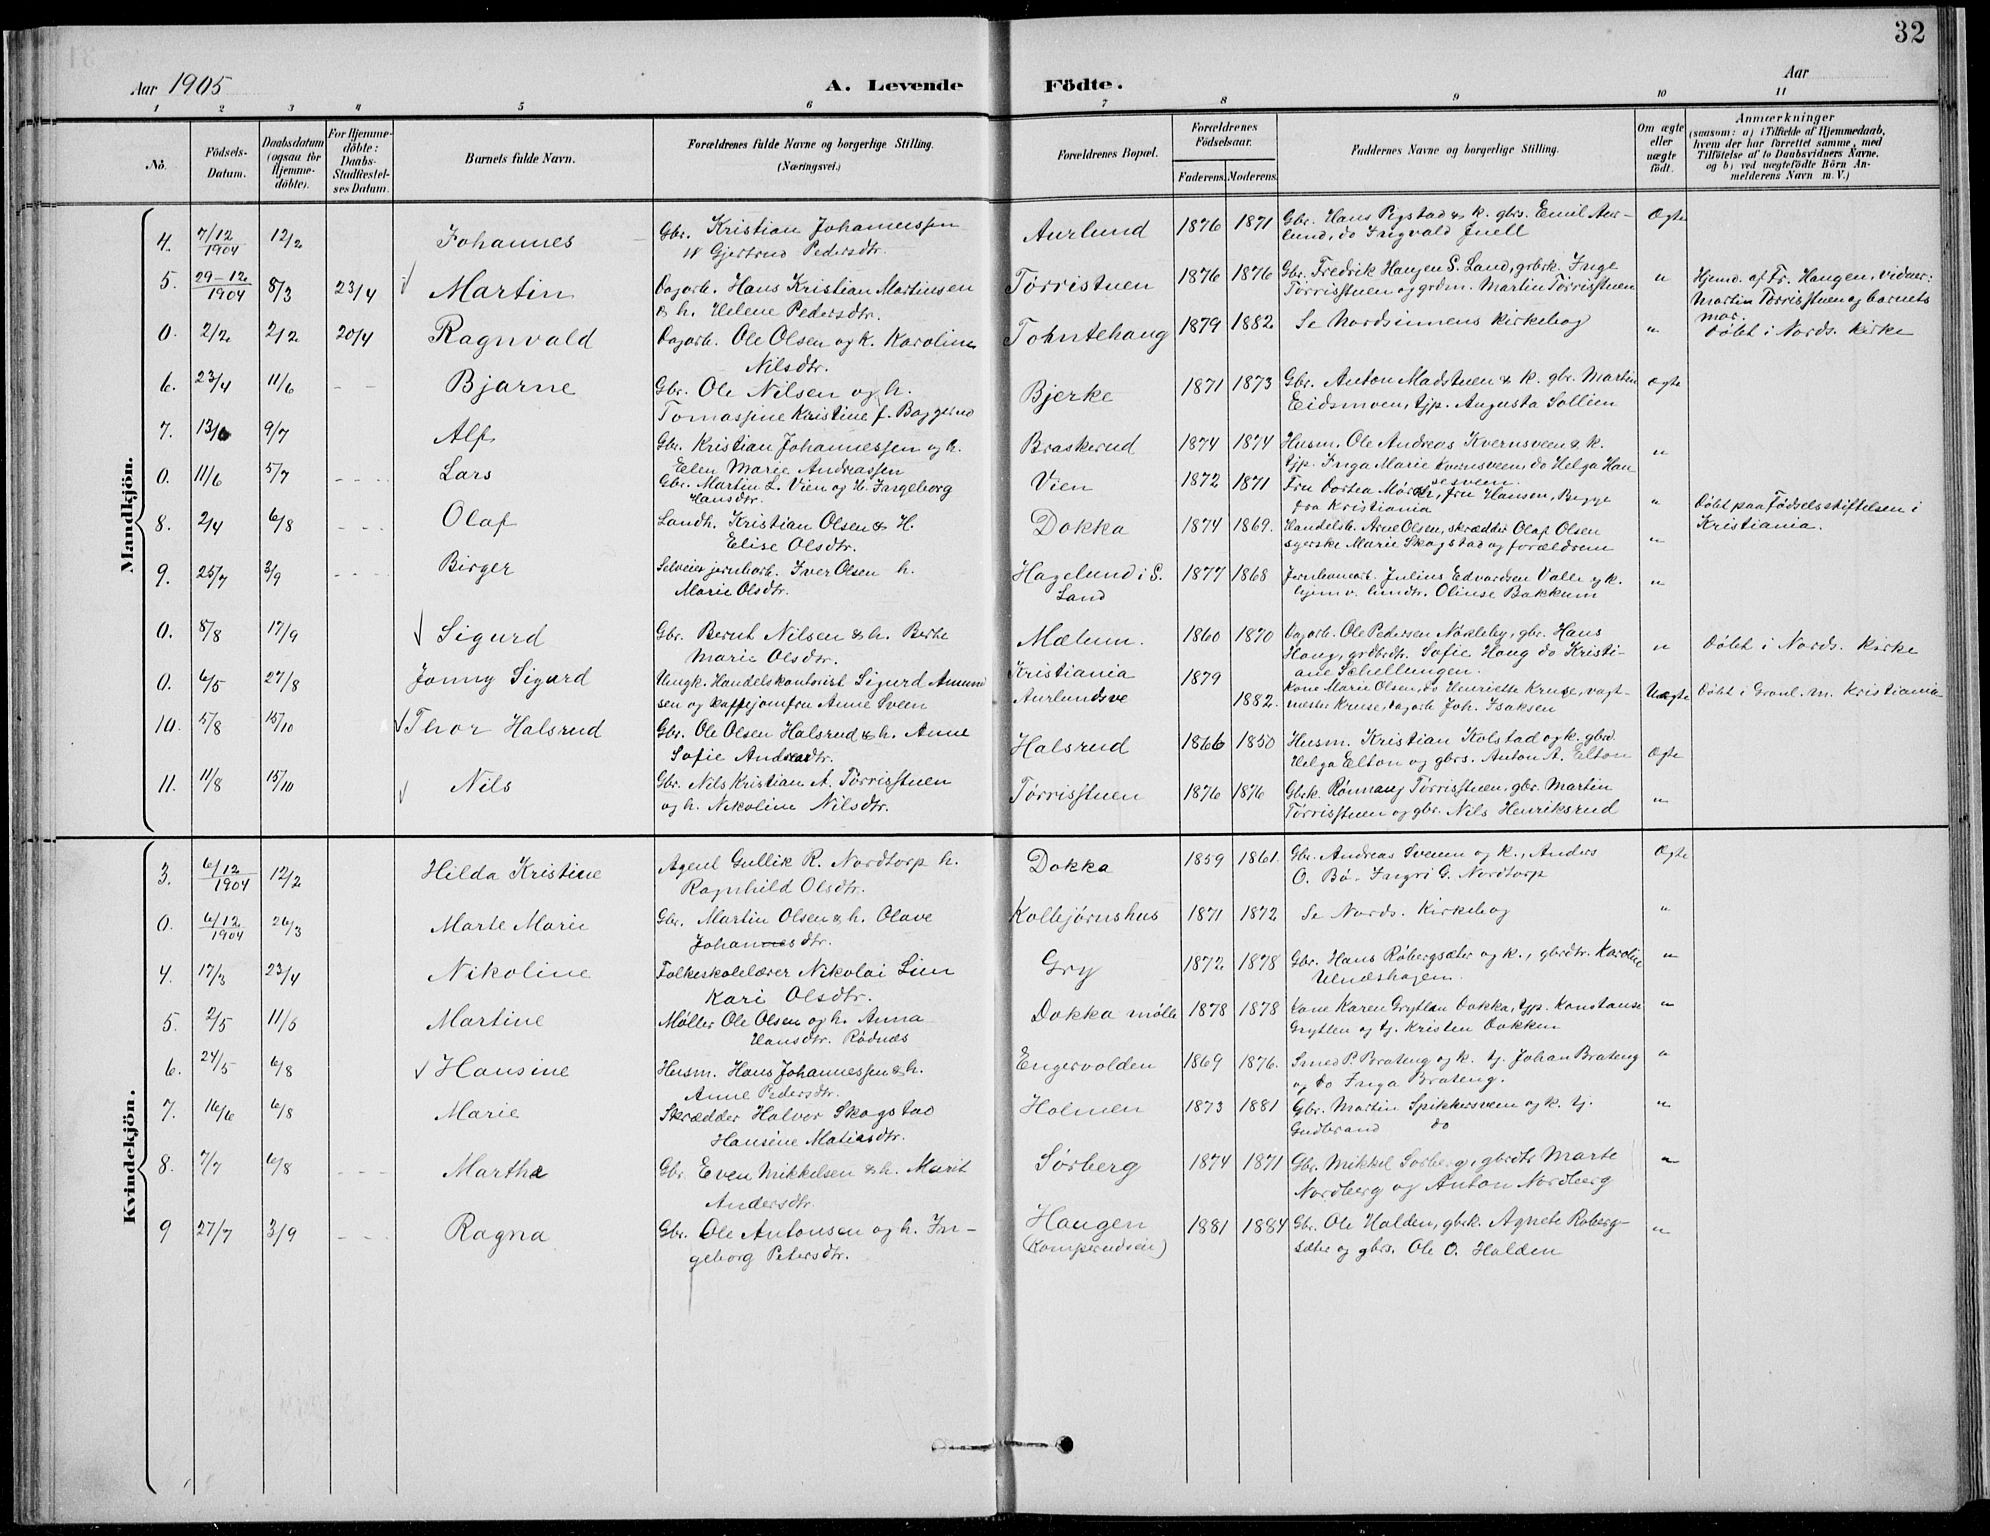 32
Aar 1905
A. Levende
Födte.
Aar
1 2 3 4 5 6 7 8 9 10 11
No.
Födsels-
Datum.
Daabsdatum
(ogsaa for
Hjemme-
döbte).
For Hjemme-
döbte:
Daabs-
Stadfæstel-
ses Datum.
Barnets fulde Navn.
Forældrenes fulde Navne og borgerlige Stilling.
(Næringsvei.)
Forældrenes Bopæl.
Forældrenes
Födselsaar.
Faderens. Moderens.
Faddernes Navne og borgerlige Stilling.
Om ægte
eller
uægte
födt.
Anmærkninger
(saasom: a) i Tilfælde af Hjemmedaab,
hvem der har forrettet samme, med
Tilföielse af to Daabsvidners Navne,
og b) ved uægtefödte Börn An-
melderens Navn m. V.)
Mandkjön.
4. 7/12 1904 12/2 Johannes
Gbr. Kristian Johannessen
Gjertrud Pedersdtr.
Aurlund 1876 1871
Gbr. Hans Pigstad & k. gbrs. Emil Aur-
lund, do Ingvald Juell
Ægte
5. 29-12 1904 8/3 23/4 Martin
Dagarb. Hans Kristian Martinsen
& h. Helene Pedersdtr.
Tørristuen 1876 1876
Gbr. Fredrik Haugen S. Land, grbrk. Inge
Tørrisstuen og grdm. Martin Tørrisstuen
"
Hjemd. af Fr. Haugen, vidner:
Martin Tørrisstuen og barnets
mor.
0. 2/2 2/2 20/4 Ragnvald
Dagarb. Ole Olsen og k. Karoline
Nilsdtr.
Tohntehaug 1879 1882.
Se Nordsinnens kirkebog
"
Døbt i Nords. kirke
6. 23/4 11/6 - - Bjarne
Gbr. Ole Nilsen og h.
Tomassine Kristine f. Baggerud
Bjerke 1871 1873
Gbr. Anton Madstuen & k. gbr. Martin
Eidsmoen, tjp. Augusta Sollien
Ægte
7. 13/6 9/7 Alf
Gbr. Kristian Johannessen og h.
Elen Marie Andreassen
Braskerud 1874 1874
Husm. Ole Andreas Kvernsveen & k.
tjp. Inga Marie Kvernsveen, do Helga Han
sesveen.
"
0. 11/6 5/7 - - - Lars
Gbr. Martin L. Vien og H. Ingeborg
Hansdtr.
Vien 1872 1871
Fru Dortea fru Hansen, Begge
fra Kristiania
"
Døbt paa Fødselsstiftelsen i
Kristiania.
8. 2/4 6/8 - - - Olaf
Landh. Kristian Olsen & H.
Elise Olsdtr.
Dokka 1874 1869.
Handelsb. Arne Olsen, skrædder Olaf Olsen
syerske Marie Skogstad og forældrene
"
9. 25/7 3/9 - - - Birger
Selveier jernbarb. Iver Olsen h.
Marie Olsdtr.
Hagelund i S.
Land
1877 1868
Jernbanearb. Julius Edvardsen Valle og k.
hjemv. Olinse Bakkum
"
0. 8/8 17/9 √ Sigurd
Gbr. Bernt Nilsen & h. Berte
Marie Olsdtr.
Mælum. 1860 1870
Dagarb. Ole Pedersen Nøkleby, gbr. Hans
Haug, grdbrdtr. Sofie Haug do Kristi-
ane Schellungen.
"
Døbt i Nords. kirke
0. 6/5 27/8 Jonny Sigurd
Ungk. Handelskontorist Sigurd Amund
sen og kaffejomfru Anne Sveen
Kristiania
Aurlundsve
1879
1882.
Kone Marie Olsen, do Henriette Kruse, vagt-
mester Kruse, dagarb Joh. Isaksen
Uægte
Døbt i Grønl. m. Kristiania
10. 5/8 15/10 √ Thor Halsrud
Gbr. Ole Olsen Halsrud & h. Anne
Sofie Andersdtr.
Halsrud 1866 1850
Husm. Kristian Kolstad og k. gbrd
Helga Elton og gbrs. Anton A. Elton
Ægte
11. 11/8 15/10 √ Nils
Gbr. Nils Kristian A. Tørrisstuen
og h. Nikoline Nilsdtr.
Tørrisstuen 1876 1876
Gbrk. Rønnaug Tørrisstuen, gbr. Martin
Tørrisstuen og gbr. Nils Henriksrud
"
Kvindekjön.
3. 6/12 1904 12/2 Hilda Kristine
Agent Gullik R. Nordtorp h.
Ragnhild Olsdtr.
Dokka 1859 1861.
Gbr. Andreas Sveen og k., Anders
O. Bø. Ingri G. Nordtorp
Ægte
0. 6/12 1904 26/3 Marte Marie
Gbr. Martin Olsen & h. Olave
Johannesdtr.
Kolbjørnshus 1871 1872
Se Nords. Kirkebog
"
4. 17/3 23/4 Nikoline
Folkeskolelærer Nikolai Lien
Kari Olsdtr.
Gry 1872 1878
Gbr. Hans Røbergsæter og k., gbrdtr. Karoline
Ulnæshagen.
"
5. 2/5 11/6 Martine
Møller Ole Olsen og h. Anna
Hansdtr. Rødnæs
Dokka mølle 1878 1878
Kone Karen Grytten Dokka, tjp. Konstanse
Grytten og tj. Kristen Dokken
"
6. 24/5 6/8 √ Hansine
Husm. Hans Johannessen & h.
Anne Pedersdtr.
Engervolden 1869 1876.
Smed P. Brateng og k. tj. Johan Brateng
og do Inga Brateng.
"
7. 16/6 6/8 Marie
Skrædder Halvor Skogstad
Hansine Matiasdtr.
Holmen 1873 1881
Gbr. Martin Spikkersveen og k. tj.
Gudbrand do
"
8. 7/7 6/8 - - - Marthe
Gbr. Even Mikkelsen & h. Marit
Andersdtr.
Sørberg 1874 1871
Gbr. Mikkel Sørberg, gbrdtr Marte
Nordberg og Anton Nordberg
"
9 27/7 3/9 - - - Ragna
Gbr. Ole Antonsen og h. In-
geborg Petersdtr.
Haugen
(Komperudseie)
1881 1884
Gbr. Ole Halden, gbrk. Agnete Røberg-
sæter og gbrs. Ole O. Halden
"